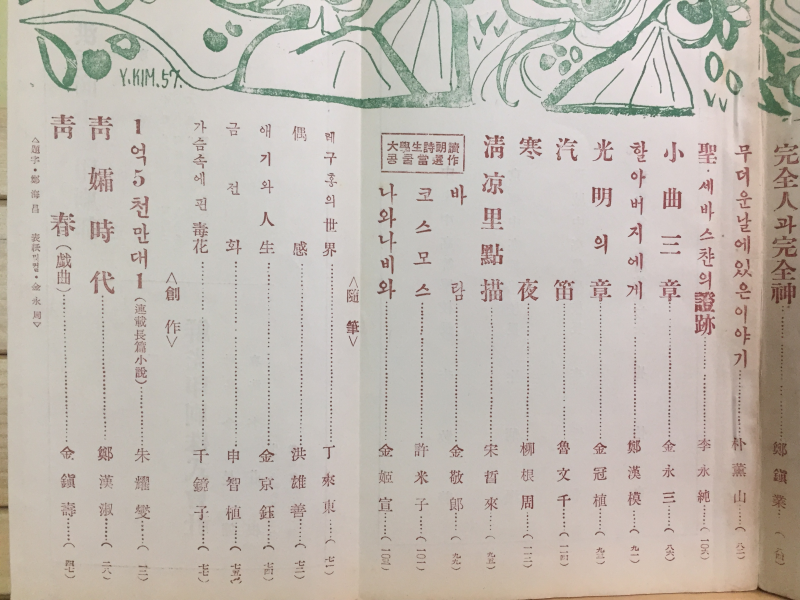 Y.KIM.57.
完全人과完全神 鄭鎭業
무더운날에있은이야기 朴薰山 (八二)
聖·세바스챤의證跡 李永純 (一〇六)
小曲三章 金永三 (八六)
할아버지에게 鄭漢模 (九一)
光明의章 金冠植 (九二)
汽笛 魯文千 (一一四)
寒夜 柳根周 (一一二)
淸凉里點描 宋哲來 (九五)
大學生詩朗讀
콩쿨當選作
바람 金敬郎 (九九)
코스모스 許米子 (一〇一)
나와나비와 金姬宣 (一〇三)
<隨筆>
메구홍의世界 丁來東 (七一)
偶感 洪雄善 (七三)
애기와人生 金京鈺 (七四)
금전화 申智植 (七五)
가슴속에핀毒花 千鏡子 (七七)
<創作>
1억5천만대1(連載長篇小說) 朱耀燮 (一二)
靑孀時代 鄭漢淑 (二八)
靑春(戱曲) 金鎭壽 (四七)
<題字·鄭海昌 表紙및컽·金永周>